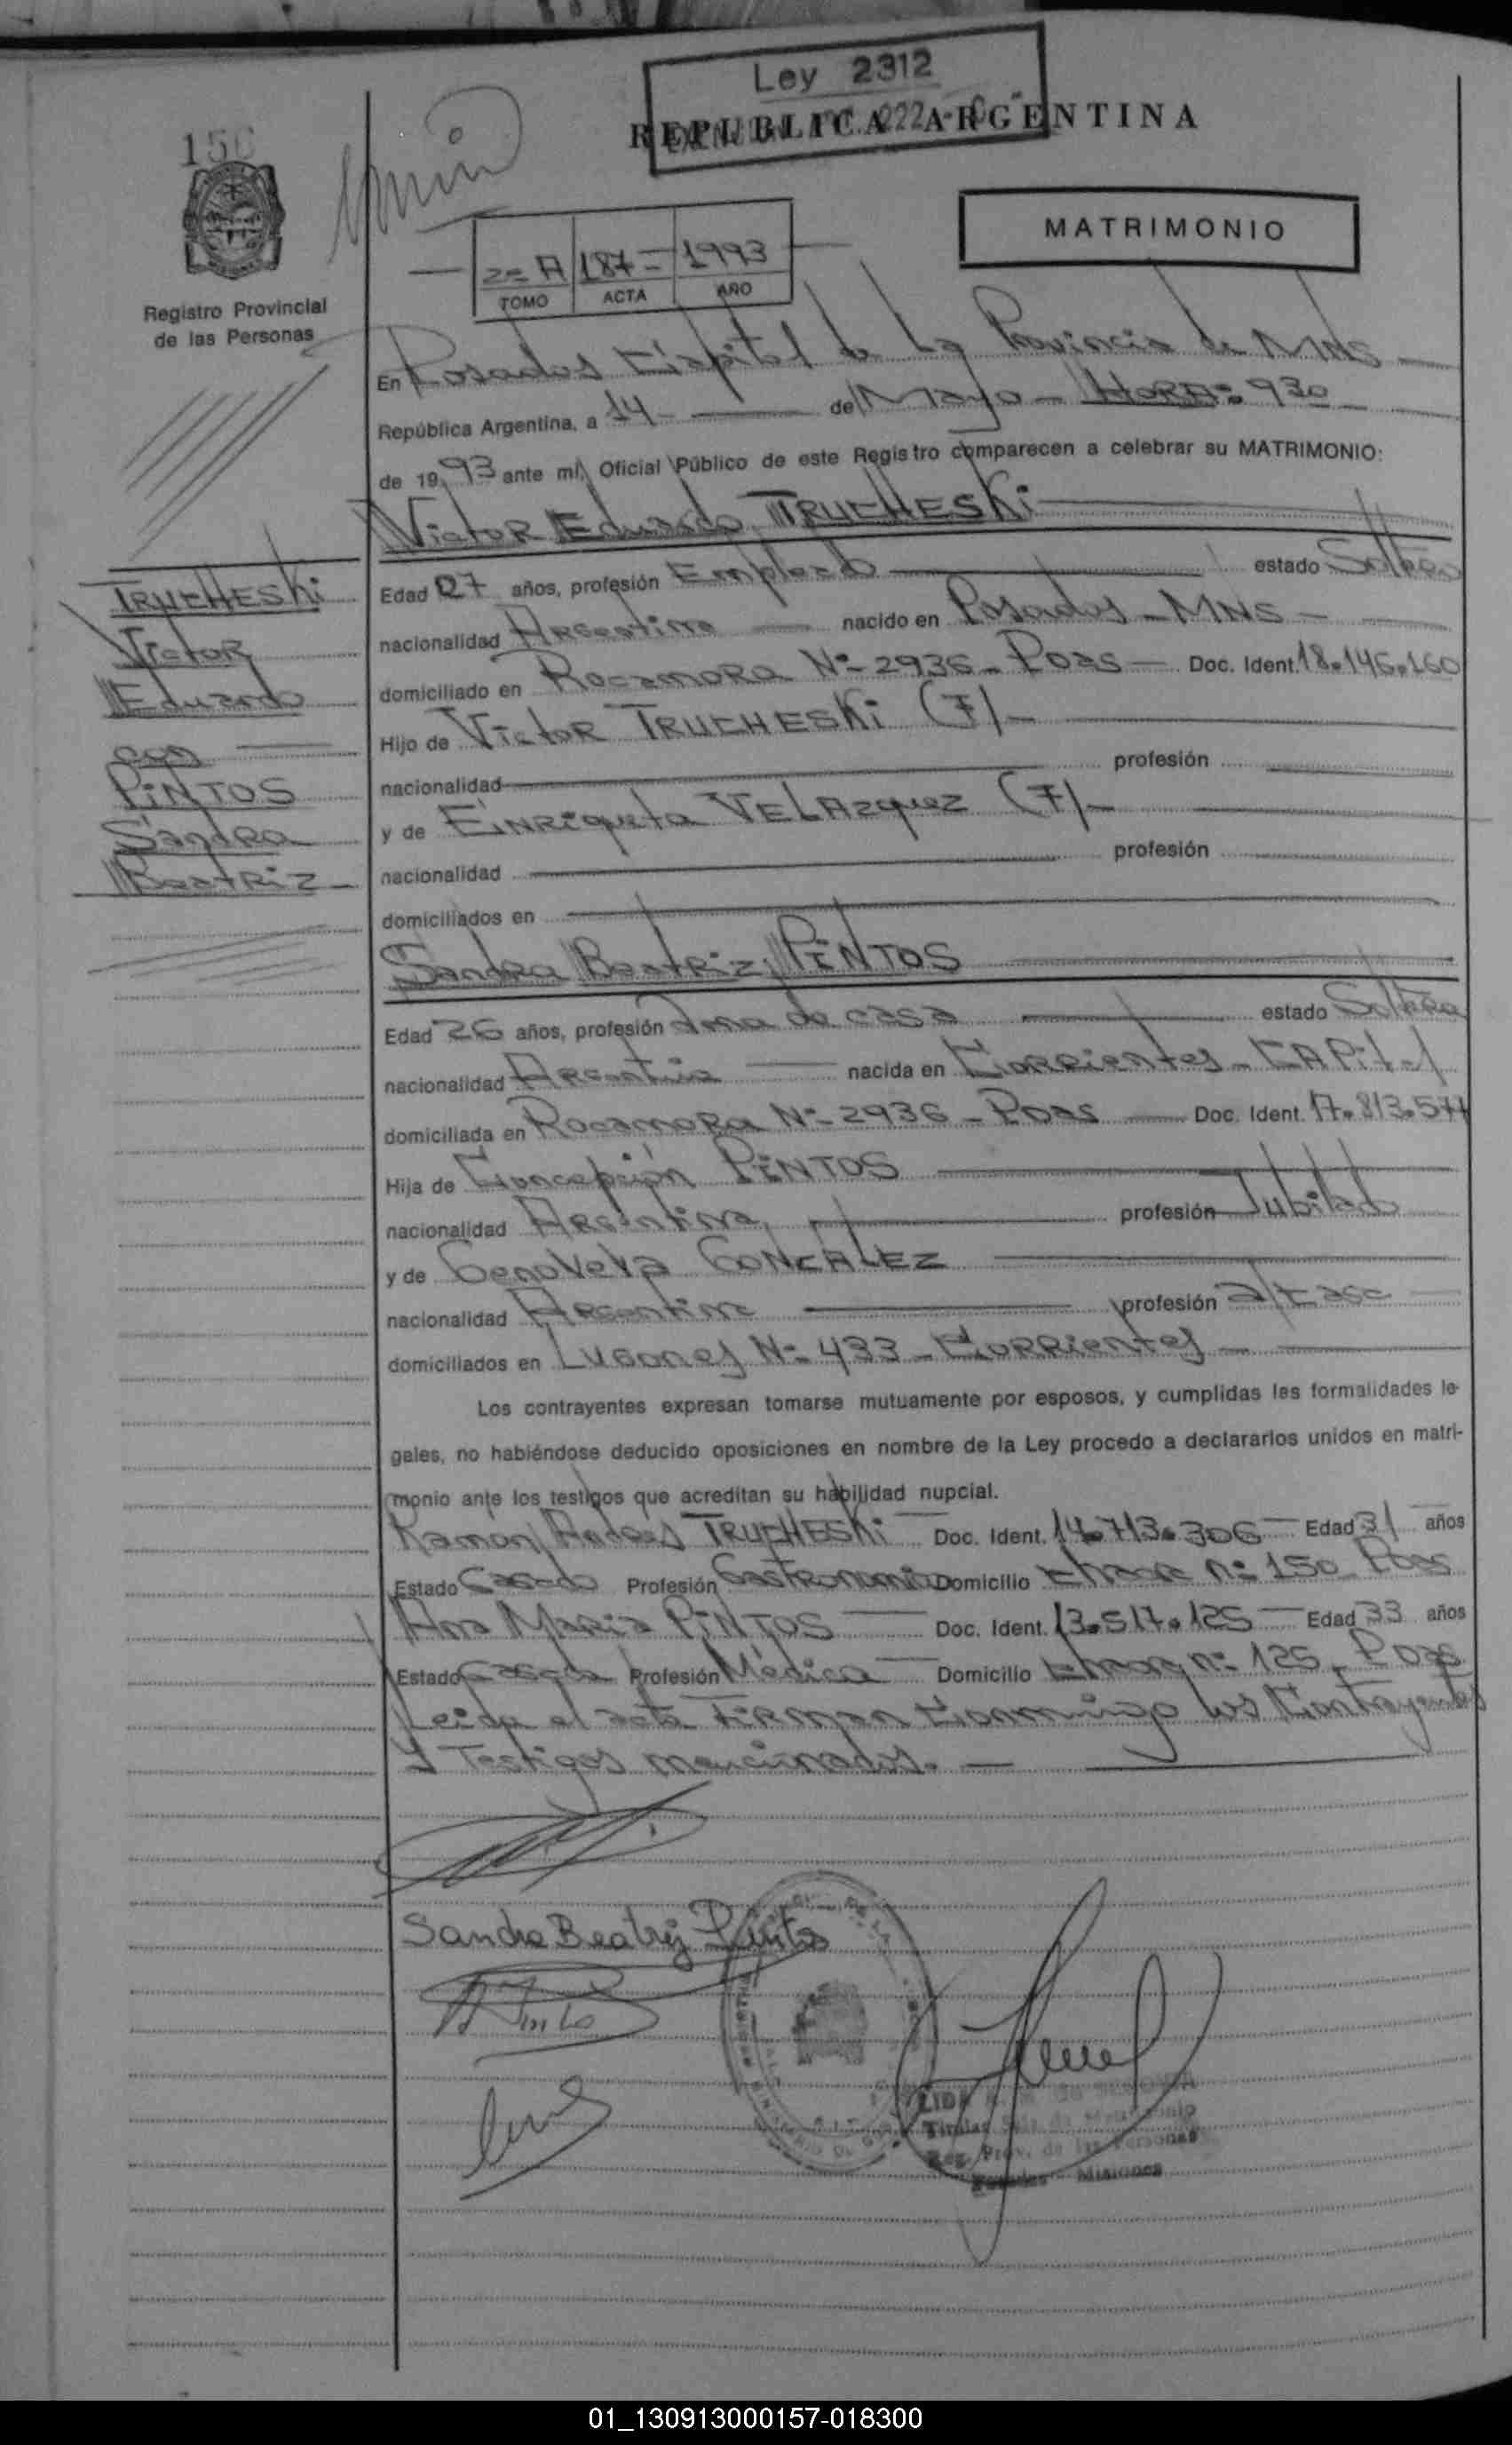 Ley 2312
REPUBLICA ARGENTINA
MATRIMONIO
2= A 187= 1993
TOMO ACTA AÑO
Registro Provincial
de las Personas
En Posadas Capital de la Provincia de MNS
República Argentina, a 14 de Mayo - HORA: 930
de 1993 ante mí, Oficial Público de este Registro comparecen a celebrar su MATRIMONIO:
Victor Eduardo TRUCHESKi
TRUCHESKi
Victor
Eduardo
con
PiNTOS
Sandra
Beatriz
Edad 27 años, profesión Empleado estado Soltero
nacionalidad Argentina nacido en Posadas - MNS -
domiciliado en Rocamora Nº 2936 - Pdas - Doc. Ident. 18.146.160
Hijo de Victor TRUCHESKi (F)
nacionalidad profesión
y de Enriqueta VELAzquez (F)
nacionalidad profesión
domiciliados en
Sandra Beatriz PiNTOS
Edad 26 años, profesión Ama de casa estado Soltera
nacionalidad Argentina nacida en Corrientes - CAPital
domiciliada en Rocamora Nº 2936 - Pdas Doc. Ident. 17.813.577
Hija de Concepción PiNTOS
nacionalidad Argentina profesión Jubilado
y de Genoveva GONZALEZ
nacionalidad Argentina profesión
domiciliados en Lugones Nº 433 - Corrientes
Los contrayentes expresan tomarse mutuamente por esposos, y cumplidas las formalidades le-
gales, no habiéndose deducido oposiciones en nombre de la Ley procedo a declararlos unidos en matri-
monio ante los testigos que acreditan su habilidad nupcial.
Ramon Andres TRUCHESKi Doc. Ident. 14.713.306 Edad 31 años
Estado Casado Profesión Gastronomico Domicilio nº 150 Pdas
Ana Maria PiNTOS Doc. Ident. 13.517.125 Edad 33 años
Estado Casada Profesión Médica Domicilio nº 125 - Pdas
Leida el acta Firman Conmigo los Contrayentes
y Testigos mencionados.
Sandra Beatriz Pintos
Pinto
Titular de Matrimonio
Reg. Prov. de las Personas
Posadas - Misiones
01_130913000157-018300